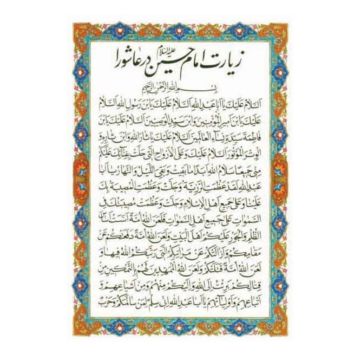 زیارت امام حسین علیه السلام در عاشورا
بِسْمِ اللهِ الرَّحْمنِ الرَّحیمِ
اَلسَّلامُ عَلَيْكَ يا اَبا عَبْدِاللهِ اَلسَّلامُ عَلَيْكَ يَا بْنَ رَسُولِ اللهِ اَلسَّلامُ
عَلَيْكَ يَا بْنَ اَميرِ الْمُؤْمِنينَ وَابْنَ سَيِّدِ الْوَصِيّينَ اَلسَّلامُ عَلَيْكَ يَا بْنَ
فاطِمَةَ سَيِّدَةِ نِساءِ الْعالَمينَ اَلسَّلامُ عَلَيْكَ يا ثارَ اللهِ وَابْنَ ثارِهِ وَ
الْوِتْرَ الْمَوْتُورَ اَلسَّلامُ عَلَيْكَ وَعَلَى الْاَرْواحِ الَّتى حَلَّتْ بِفِنائِكَ عَلَيْكُمْ
مِنّى جَميعًا سَلامُ اللهِ اَبَدًا ما بَقيتُ وَبَقِىَ اللَّيْلُ وَالنَّهارُ يا اَبا
عَبْدِاللهِ لَقَدْ عَظُمَتِ الرَّزِيَّةُ وَجَلَّتْ وَعَظُمَتِ الْمُصيبَةُ بِكَ
عَلَيْنا وَعَلى جَميعِ اَهْلِ الْاِسْلامِ وَجَلَّتْ وَعَظُمَتْ مُصيبَتُكَ فِى
السَّمواتِ عَلى جَميعِ اَهْلِ السَّمواتِ فَلَعَنَ اللهُ اُمَّةً اَسَّسَتْ اَساسَ
الظُّلْمِ وَالْجَوْرِ عَلَيْكُمْ اَهْلَ الْبَيْتِ وَلَعَنَ اللهُ اُمَّةً دَفَعَتْكُمْ عَنْ
مَقامِكُمْ وَاَزالَتْكُمْ عَنْ مَراتِبِكُمُ الَّتى رَتَّبَكُمُ اللهُ فيها وَ
لَعَنَ اللهُ اُمَّةً قَتَلَتْكُمْ وَلَعَنَ اللهُ الْمُمَهِّدينَ لَهُمْ بِالتَّمْكينِ مِنْ
قِتالِكُمْ بَرِئْتُ اِلَى اللهِ وَاِلَيْكُمْ مِنْهُمْ وَمِنْ اَشْياعِهِمْ وَ
اَتْباعِهِمْ وَاَوْلِيائِهِمْ يا اَبا عَبْدِاللهِ اِنّى سِلْمٌ لِمَنْ سالَمَكُمْ وَحَرْبٌ